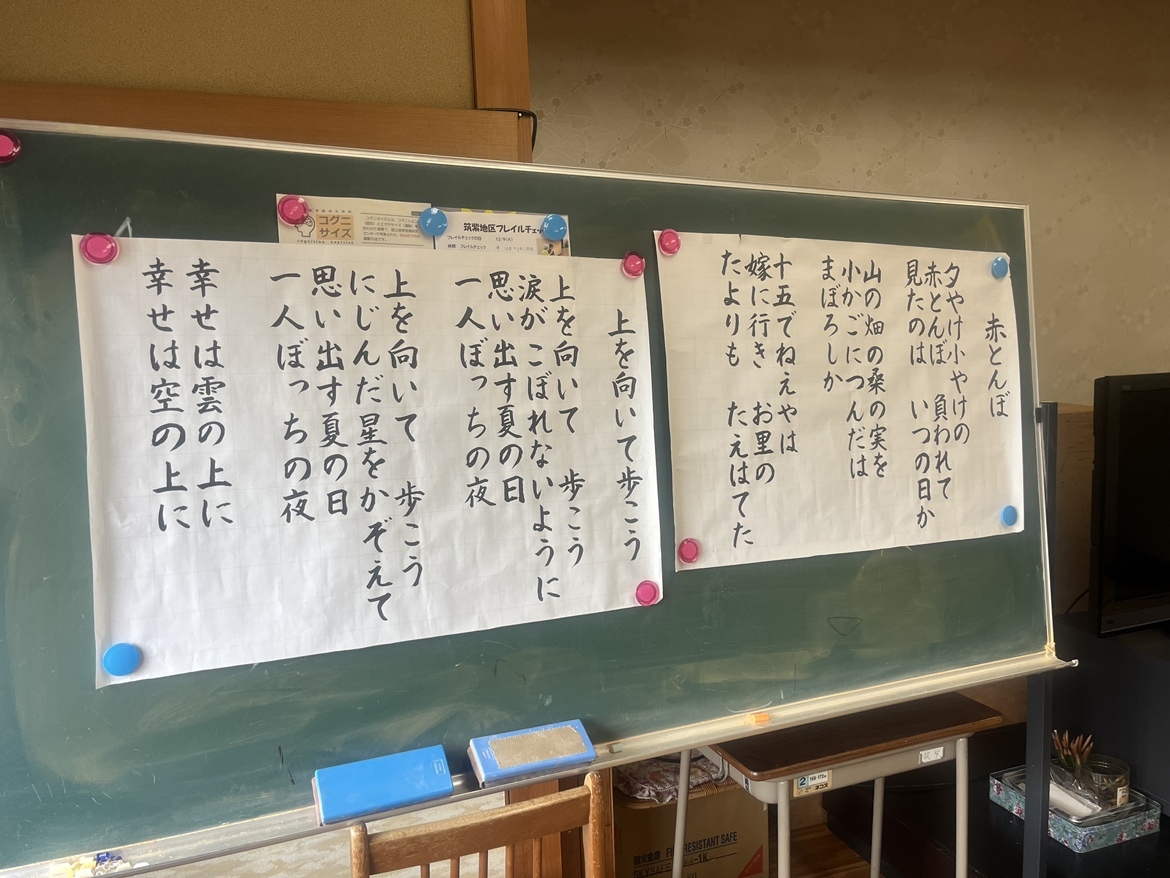 赤とんぼ
夕やけ小やけの
赤とんぼ 負われて
見たのは いつの日か
山の畑の桑の実を
小かごにつんだは
まぼろしか
十五でねえやは
嫁に行き お里の
たよりも たえはてた
上を向いて歩こう
上を向いて 歩こう
涙がこぼれないように
思い出す夏の日
一人ぼっちの夜
上を向いて 歩こう
にじんだ星をかぞえて
思い出す夏の日
一人ぼっちの夜
幸せは雲の上に
幸せは空の上に
コグニ
サイズ
cognition exercise
筑紫地区フレイルチェッ
フレイルチェックの日 12/9(火)
時間 フレイルチェック
FIRE RESISTANT SAFE
2